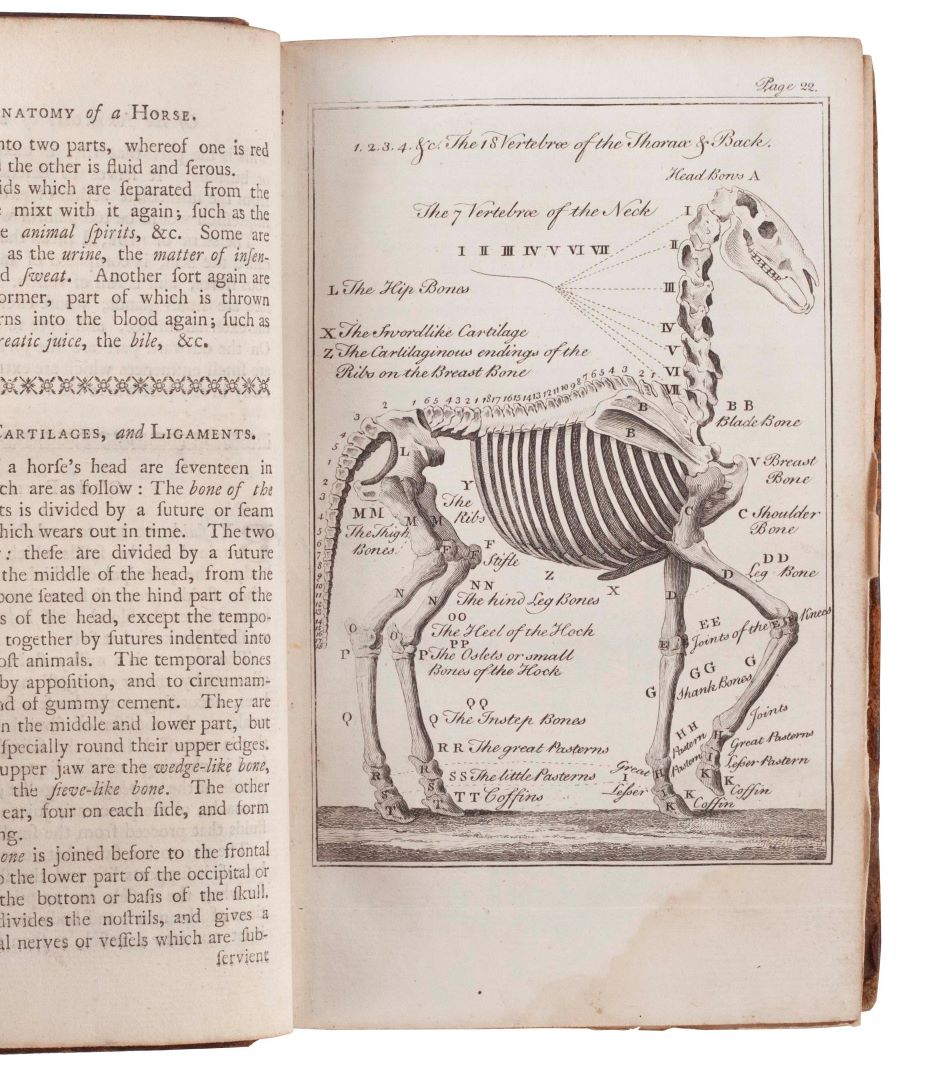 NATOMY of a HORSE.
nto two parts, whereof one is red
the other is fluid and ſerous.
ids which are ſeparated from the
mixt with it again; ſuch as the
animal ſpirits, &c. Some are
as the urine, the matter of inſen-
d ſweat. Another ſort again are
ormer, part of which is thrown
rns into the blood again; ſuch as
reatic juice, the bile, &c.
CARTILAGES, and LIGAMENTS.
a horſe's head are ſeventeen in
ch are as follow: The bone of the
ts is divided by a future or ſeam
hich wears out in time. The two
: theſe are divided by a future
the middle of the head, from the
bone ſeated on the hind part of the
s of the head, except the tempo-
together by futures indented into
oſt animals. The temporal bones
by appoſition, and to circumam-
nd of gummy cement. They are
n the middle and lower part, but
ſpecially round their upper edges.
upper jaw are the wedge-like bone,
the ſieve-like bone. The other
ear, four on each ſide, and form
ng.
one is joined before to the frontal
o the lower part of the occipital or
the bottom or baſis of the ſkull.
divides the noſtrils, and gives a
al nerves or veſſels which are ſub-
ſervient
Page 22.
1. 2. 3. 4. &c. The 18 Vertebræ of the Thorax & Back.
Head Bons A
The 7 Vertebræ of the Neck
I II III IV V VI VII
I
II
III
IV
V
VI
VII
L The Hip Bones
X The Swordlike Cartilage
Z The Cartilaginous endings of the
Ribs on the Breast Bone
3 2 1 6 5 4 3 2 1 18 17 16 15 14 13 12 11 10 9 8 7 6 5 4 3 2 1
B
B
B B
Blade Bone
L
V Breast
Bone
Y
The
Ribs
M M
M
M
The Thigh
Bones.
C
C Shoulder
Bone
F
F
Stifle
Z
X
D D
Leg Bone
D
D
N
N
N N
The hind Leg Bones
O O
The Heel of the Hock
O
O
P P
P
P The Oslets or small
Bones of the Hock
E E
Joints of the Knees
E
E
E
G
G G
Shank Bones
G
Q Q
Q
Q The Instep Bones
R R The great Pasterns
R
R
S S The little Pasterns
S
S
T T Coffins
T
T
H H
Pastern
Pastern
Joints
Great Pasterns
Leſser Pastern
Great
I
Leſser
H
H
I
I
K
K
K
K
K
Coffin
Coffin